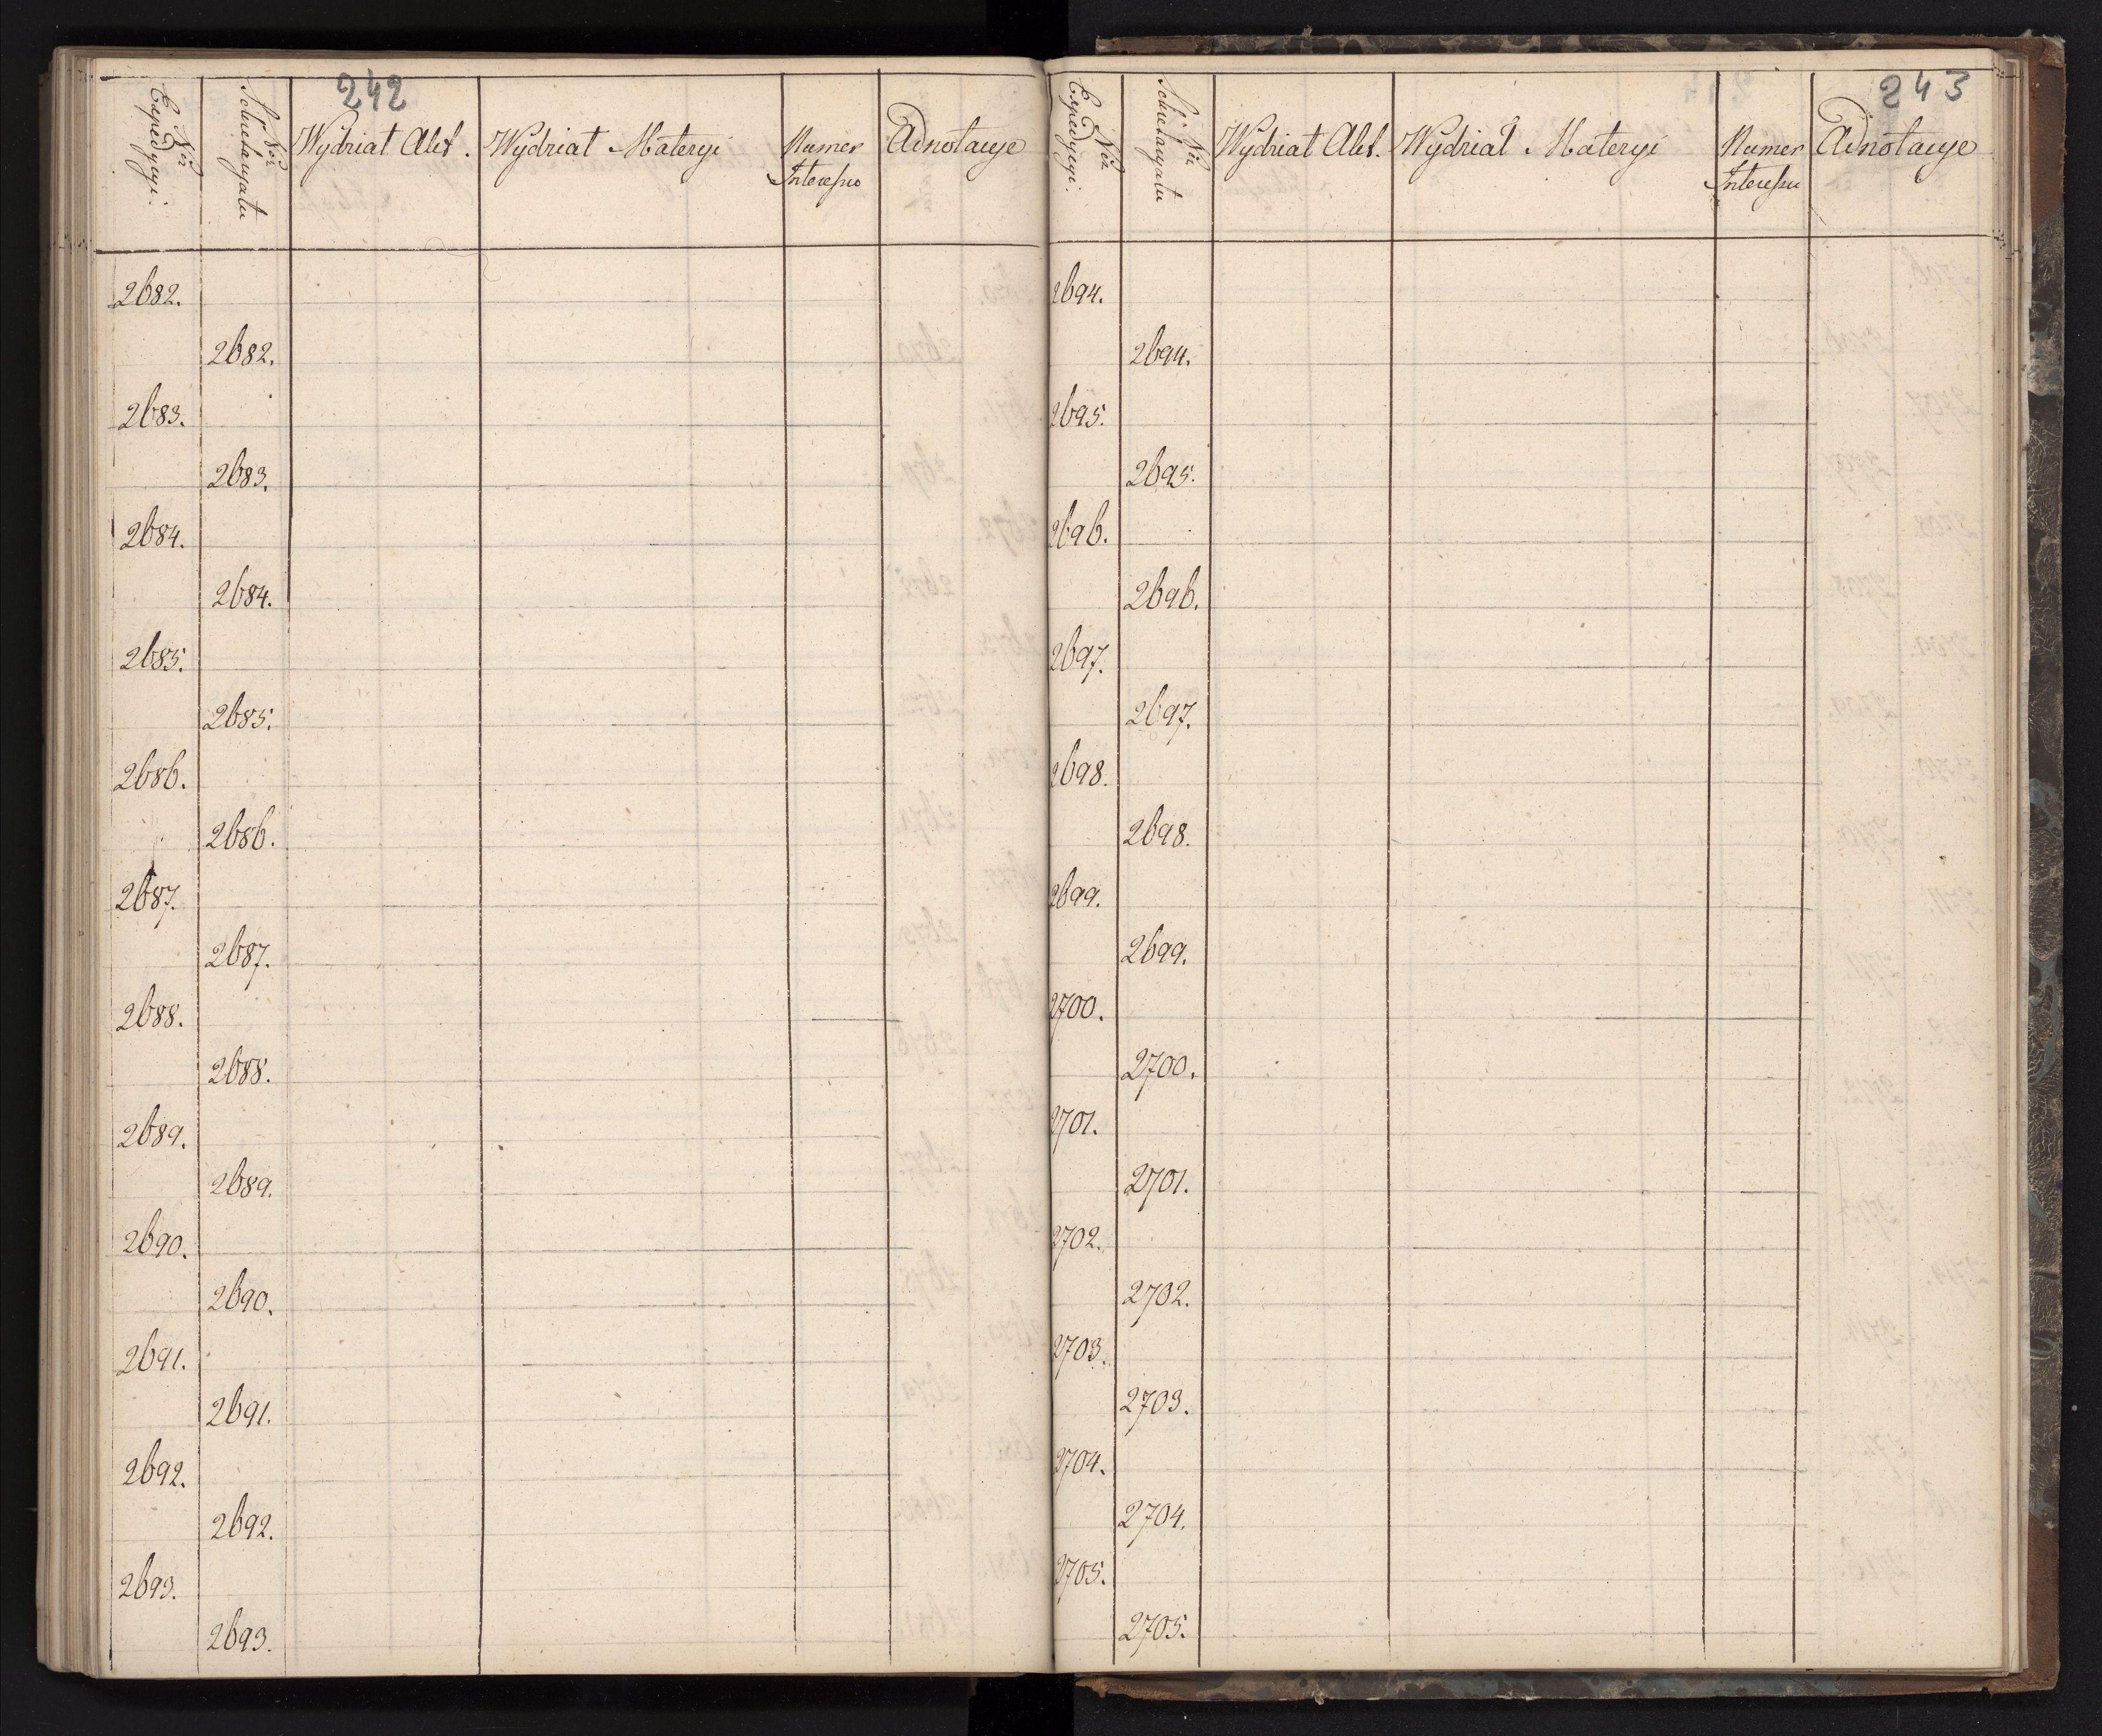 242
Nro Expedycyi.
Nro Sekretaryatu
Wydział Alef.
Wydział Materyi
Numer Interessu
Adnotacye
2682.
2682.
2683.
2683.
2684.
2684.
2685.
2685.
2686.
2686.
2687.
2687.
2688.
2688.
2689.
2689.
2690.
2690.
2691.
2691.
2692.
2692.
2693.
2693.
243
Nro Expedycyi.
Nro Sekretaryatu
Wydział Alef.
Wydział Materyi
Numer Interessu
Adnotacye
2694.
2694.
2695.
2695.
2696.
2696.
2697.
2697.
2698.
2698.
2699.
2699.
2700.
2700.
2701.
2701.
2702.
2702.
2703.
2703.
2704.
2704.
2705.
2705.